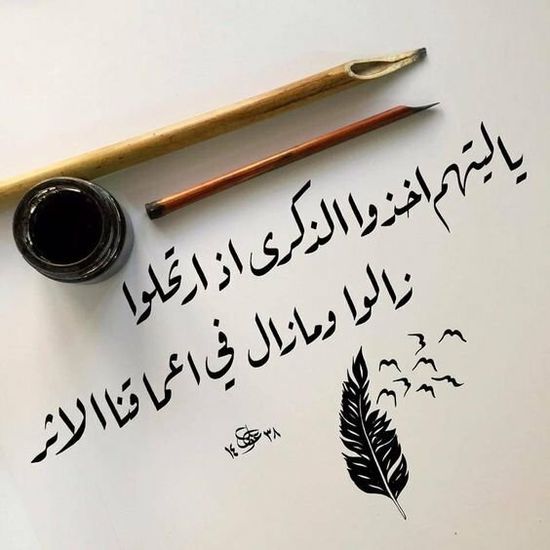 ياليتهم اخذوا الذكرى اذ ارتحلوا
زالوا ومازال في اعماقنا الاثر
١٤٣٨